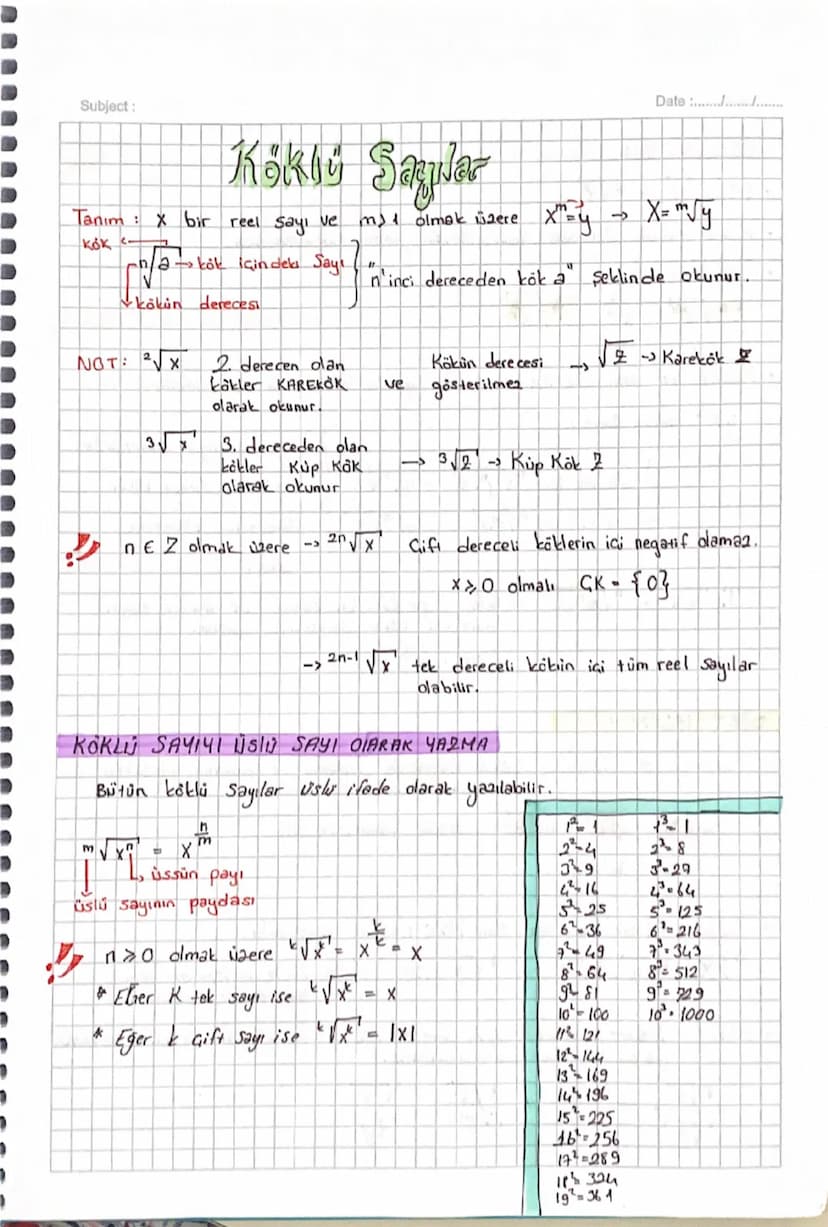 Subject :
Date :....../....../......
Köklü Sayılar
Tanım : x bir reel sayı ve m>1 olmak üzere xᵐ=y → X=ᵐ√y
kök
ⁿ√a → kök içindeki Sayı
kökün derecesi
"n'inci dereceden kök a" şeklinde okunur.
NOT: ²√x 2. derecen olan
kökler KAREKÖK
olarak okunur.
ve
Kökün derecesi
gösterilmez
→ √2 → Karekök 2
³√x 3. dereceden olan
kökler Küp Kök
olarak okunur
→ ³√2 → Küp Kök 2
n ∈ Z olmak üzere → ²ⁿ√x Çift dereceli köklerin içi negatif olamaz.
x ≥ 0 olmalı ÇK = {0}
→ ²ⁿ⁻¹√x tek dereceli kökün içi tüm reel sayılar
olabilir.
KÖKLÜ SAYIYI ÜSLÜ SAYI OLARAK YAZMA
Bütün köklü sayılar üslü ifade olarak yazılabilir.
ᵐ√xⁿ = x^(n/m)
üssün payı
üslü sayının paydası
n>0 olmak üzere ᵏ√xᵏ = x^(k/k) = x
* Eğer K tek sayı ise ᵏ√xᵏ = x
* Eğer k çift sayı ise ᵏ√xᵏ = |x|
1²=1
2²=4
3²=9
4²=16
5²=25
6²=36
7²=49
8²=64
9²=81
10²=100
11²=121
12²=144
13²=169
14²=196
15²=225
16²=256
17²=289
18²=324
19²=361
1³=1
2³=8
3³=27
4³=64
5³=125
6³=216
7³=343
8³=512
9³=729
10³=1000